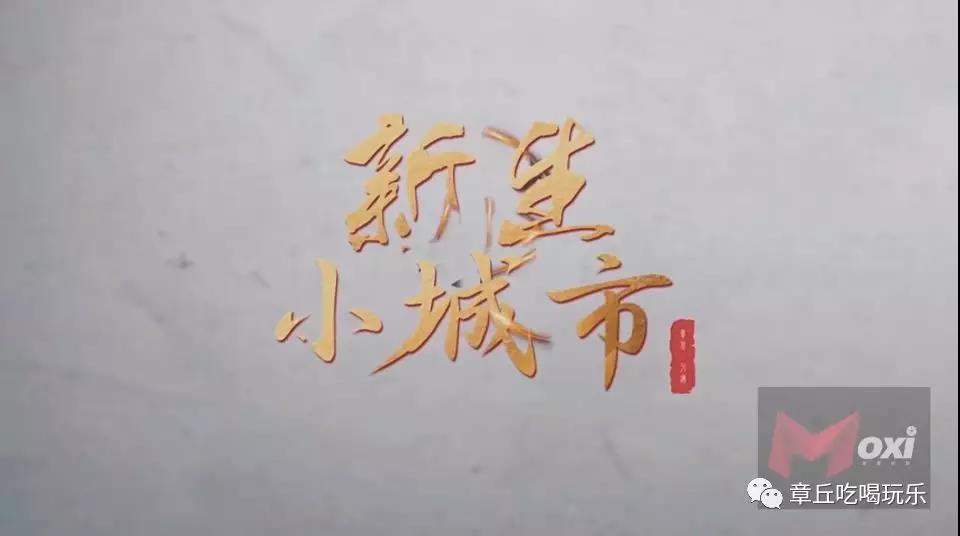 新生
小城市
Moxi
章丘吃喝玩乐